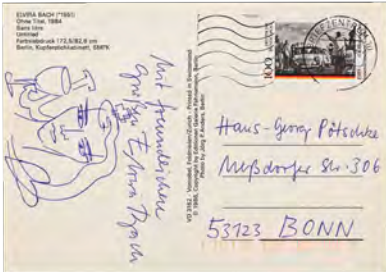 ELVIRA BACH (*1951)
Ohne Titel, 1984
Sans titre
Untitled
Farbsiebdruck 172,5/82,8 cm
Berlin, Kupferstichkabinett, SMPK
Mit freundlichen
Grüßen Elvira Bach
VD 3162 · Vontobel, Feldmeilen/Zürich · Printed in Switzerland
Photo by Jörg P. Anders, Berlin
100
BRIEFZENTRUM
Hans-Georg Pötschke
Meßdorfer Str. 306
53123 BONN